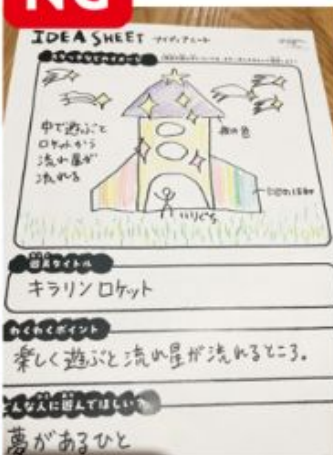 NG
IDEA SHEET アイディアシート
中で遊ぶと
ロケットから
流れ星が
流れる
いりぐち
遊具タイトル
キラリンロケット
わくわくポイント
楽しく遊ぶと流れ星が流れるところ。
どんな人に遊んでほしい
夢があるひと